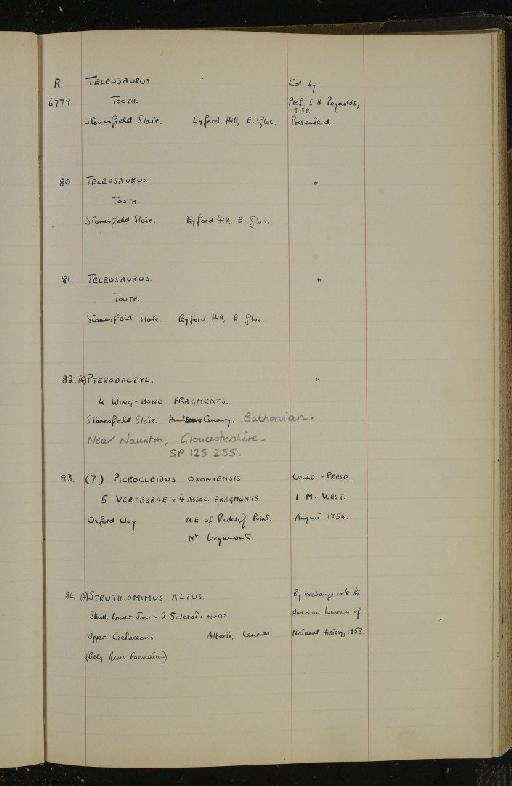 R TELEOSAURUS Col. by
6779 TOOTH. Prof. S. H. Reynolds,
Stonesfield Slate. Eyford Hill, E. Glos. Presented
80 TELEOSAURUS "
TOOTH.
Stonesfield Slate. Eyford Hill, E. Glos.
81 TELEOSAURUS. "
TOOTH.
Stonesfield Slate. Eyford Hill, E. Glos.
82. PTERODACTYL. "
4 WING-BONE FRAGMENTS.
Stonesfield Slate. Bathonian.
Near Naunton, Gloucestershire.
SP 125 255.
83. (?) PICROCLEIDUS OXONIENSIS
5 VERTEBRAE + 4 ASSOC. FRAGMENTS I. M. West.
Oxford Clay N.E. of Point. August 1956.
Nr Weymouth
84 STRUTHIOMIMUS ALTUS. By exchange with the
Skull, Lower Jaw + 2 Sclerotic rings. American Museum of
Upper Cretaceous Alberta, Canada Natural History, 1953
(Belly River Formation)